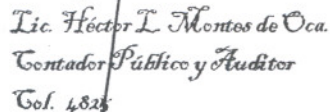 Lic. Héctor L. Montes de Oca.
Contador Público y Auditor
Col. 4825